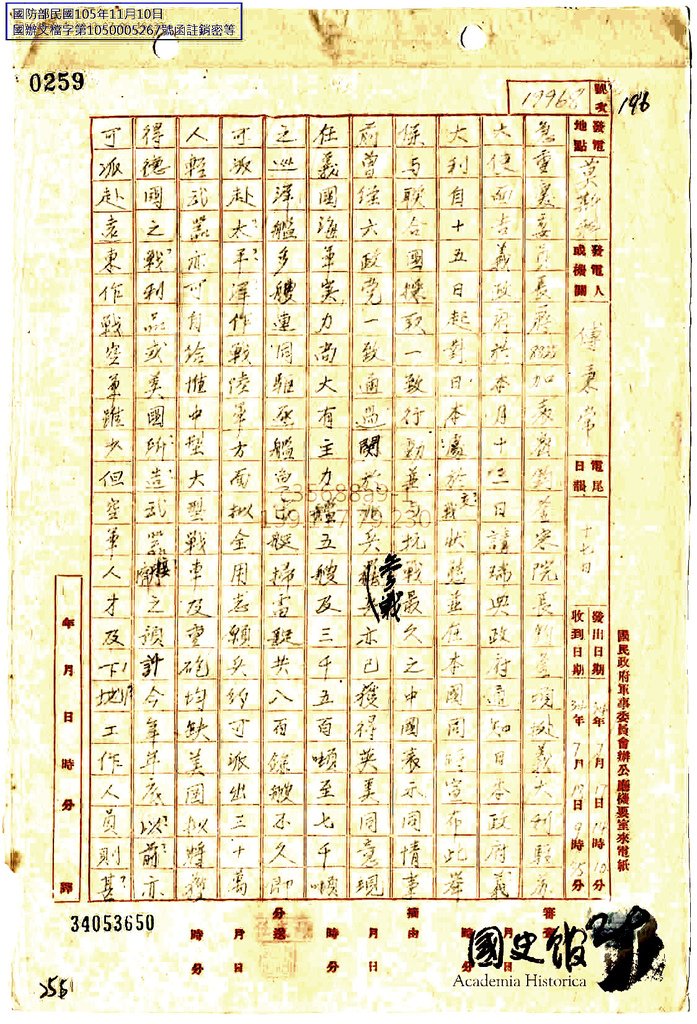 國防部民國105年11月10日
國辦文檔字第1050005267號函註銷密等
0259
號次 19968
196
發電地點 莫斯科
發電人或機關 傅秉常
電尾日韻 十七日
發出日期 34年7月17日19時10分
收到日期 34年7月19日9時15分
國民政府軍事委員會辦公廳機要室來電紙
急重慶委員長蔣加表密鈞鑒宋院長鈞鑒頃據義大利駐蘇
大使面告義政府於本月十三日請瑞典政府通知日本政府義
大利自十五日起對日本處於戰狀態並在本國同時宣布此舉
係與聯合國採取一致行動兼與抗戰最久之中國表示同情事
前曾經六政黨一致通過關於派兵參戰亦已獲得英美同意現
在義國海軍實力尚大有主力艦五艘及三千五百噸至七千噸
之巡洋艦多艘連同驅逐艦艇掃雷艇共八百餘艘不久即
可派赴太平洋作戰陸軍方面擬全用志願兵約可派出三十萬
人輕武器亦可自給惟中型大型戰車及重砲均缺美國擬將獲
得德國之戰利品或美國所造武器之預計今年年底以前亦
可派赴遠東作戰空軍雖少但空軍人才及地下工作人員則甚
年 月 日 時 分 譯
審查 月 日 時 分
摘由 月 日 時 分
分送 月 日 時 分
34053650
256
國史館
Academia Historica